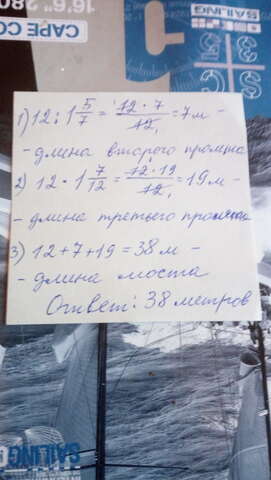 CAPE CO
16'6" 280
SAILING
1) 12 : 1 5/7 = 12 · 7 / 12 = 7 м -
- длина второго пролёта
2) 12 · 1 7/12 = 12 · 19 / 12 = 19 м -
- длина третьего пролёта
3) 12 + 7 + 19 = 38 м -
- длина моста
Ответ: 38 метров
SAILING